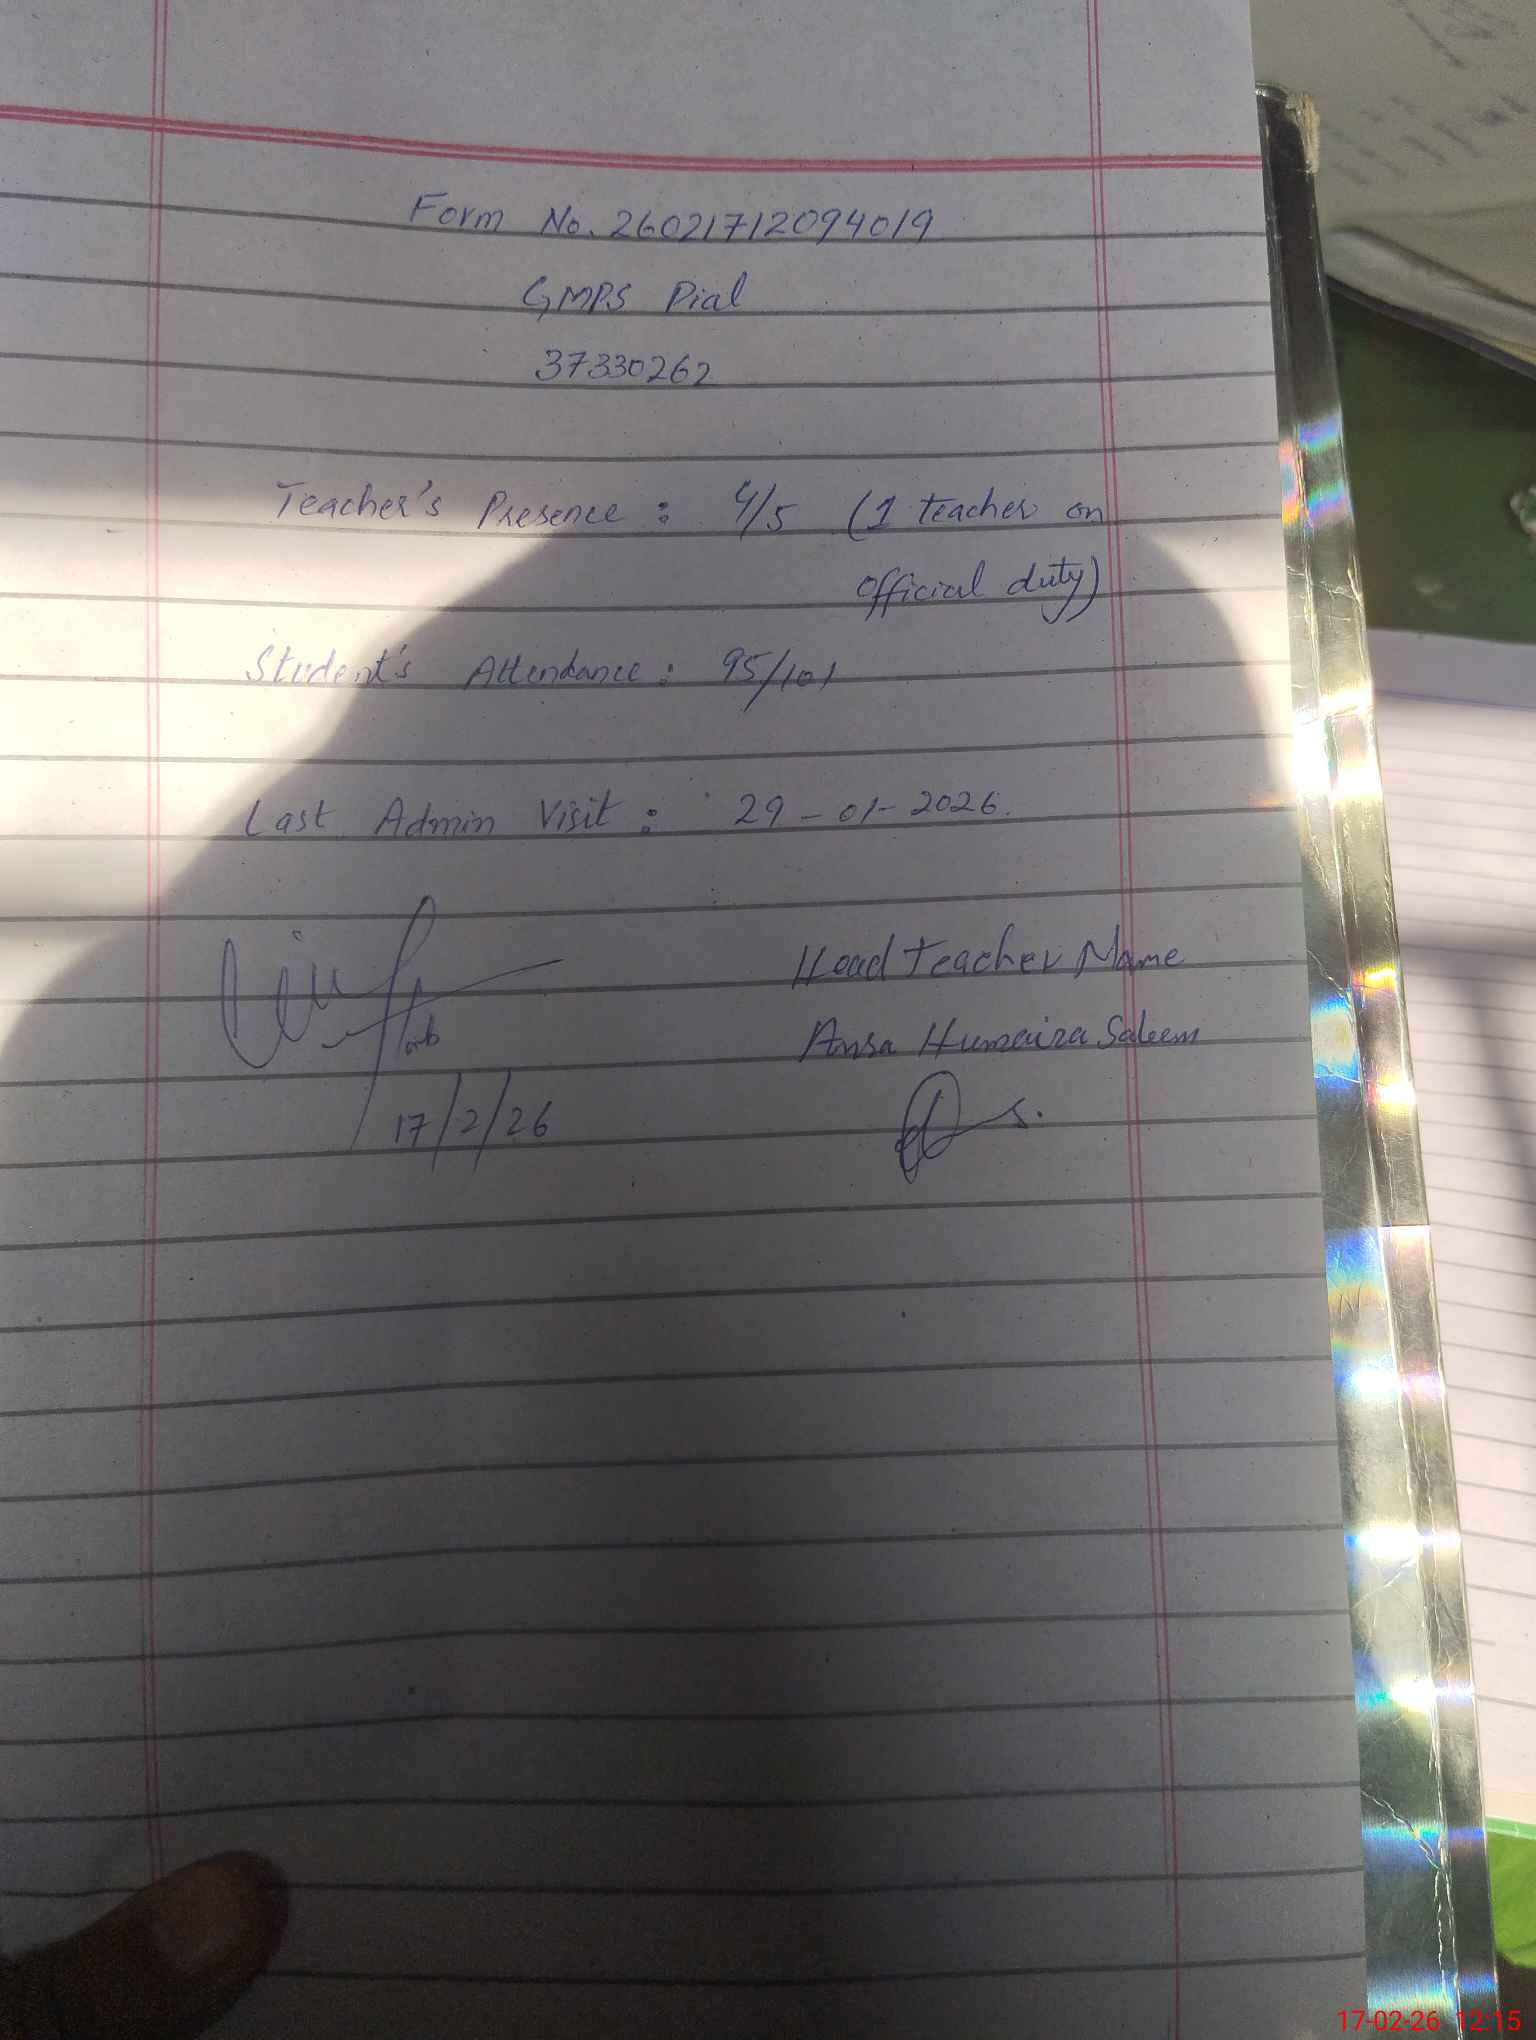 Form No. 26021712094019
GMPS Pial
37330262
Teacher's Presence : 4/5 (1 teacher on
official duty)
Student's Attendance : 95/101
Last Admin Visit : 29-01-2026.
Head Teacher Name
Ansa Humaira Saleem
17/2/26
17-02-26 12:15